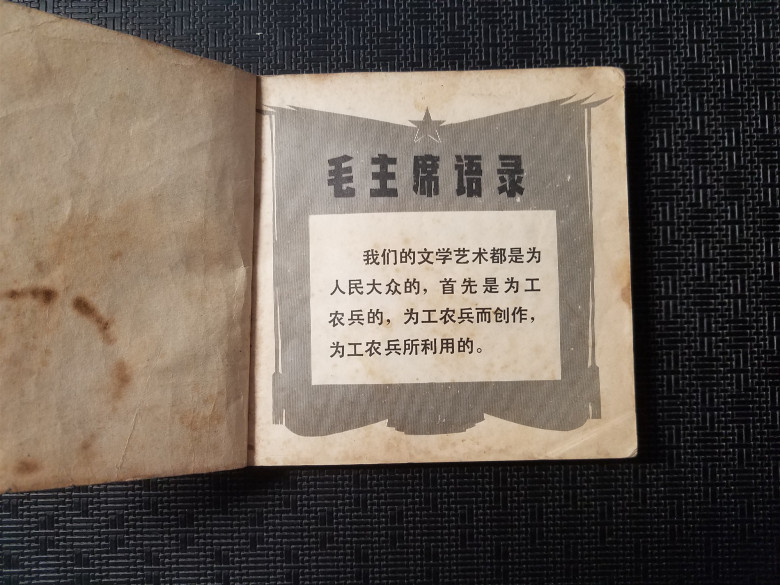 毛主席语录
我们的文学艺术都是为
人民大众的，首先是为工
农兵的，为工农兵而创作，
为工农兵所利用的。